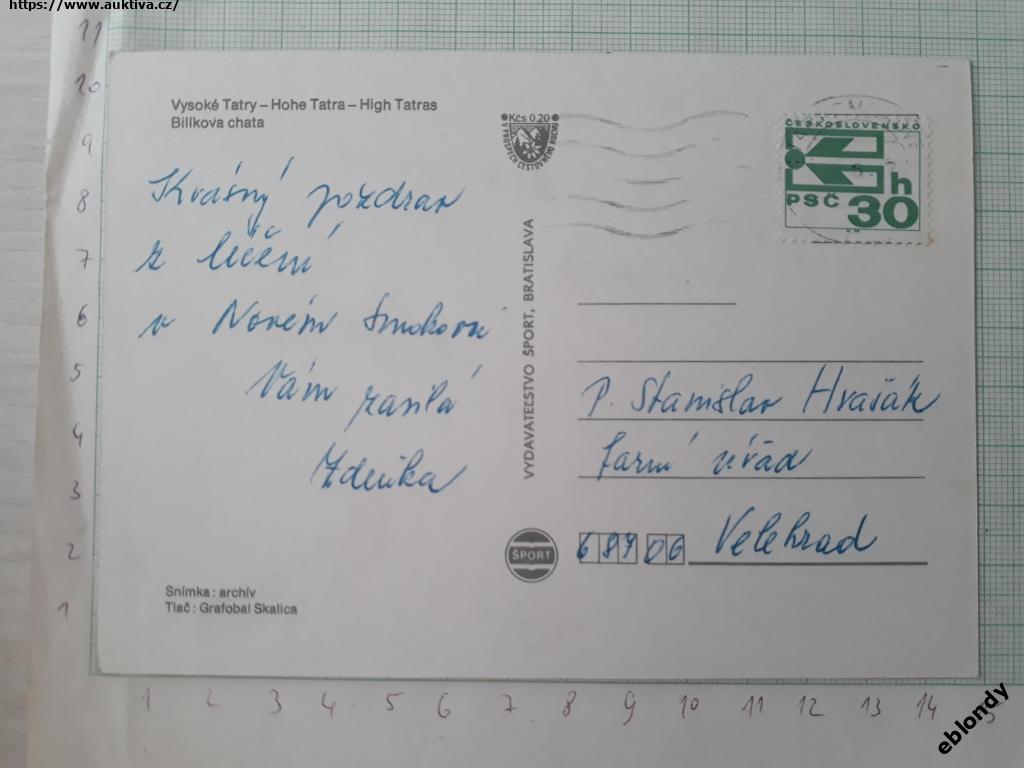 https://www.auktiva.cz/
Vysoké Tatry – Hohe Tatra – High Tatras
Bilíkova chata
Krásný pozdrav
z léčění
v Novém Smokovci
Vám zasílá
Zdeňka
Kčs 0,20
V PROSPECH CESTOVNÉHO RUCHU
VYDAVATEĽSTVO ŠPORT, BRATISLAVA
ŠPORT
ČESKOSLOVENSKO
PSČ 30 h
P. Stanislav Hrašák
farní úřad
687 06 Velehrad
Snímka : archív
Tlač : Grafobal Skalica
11
10
9
8
7
6
5
4
3
2
1
1 2 3 4 5 6 7 8 9 10 11 12 13 14
eblondy